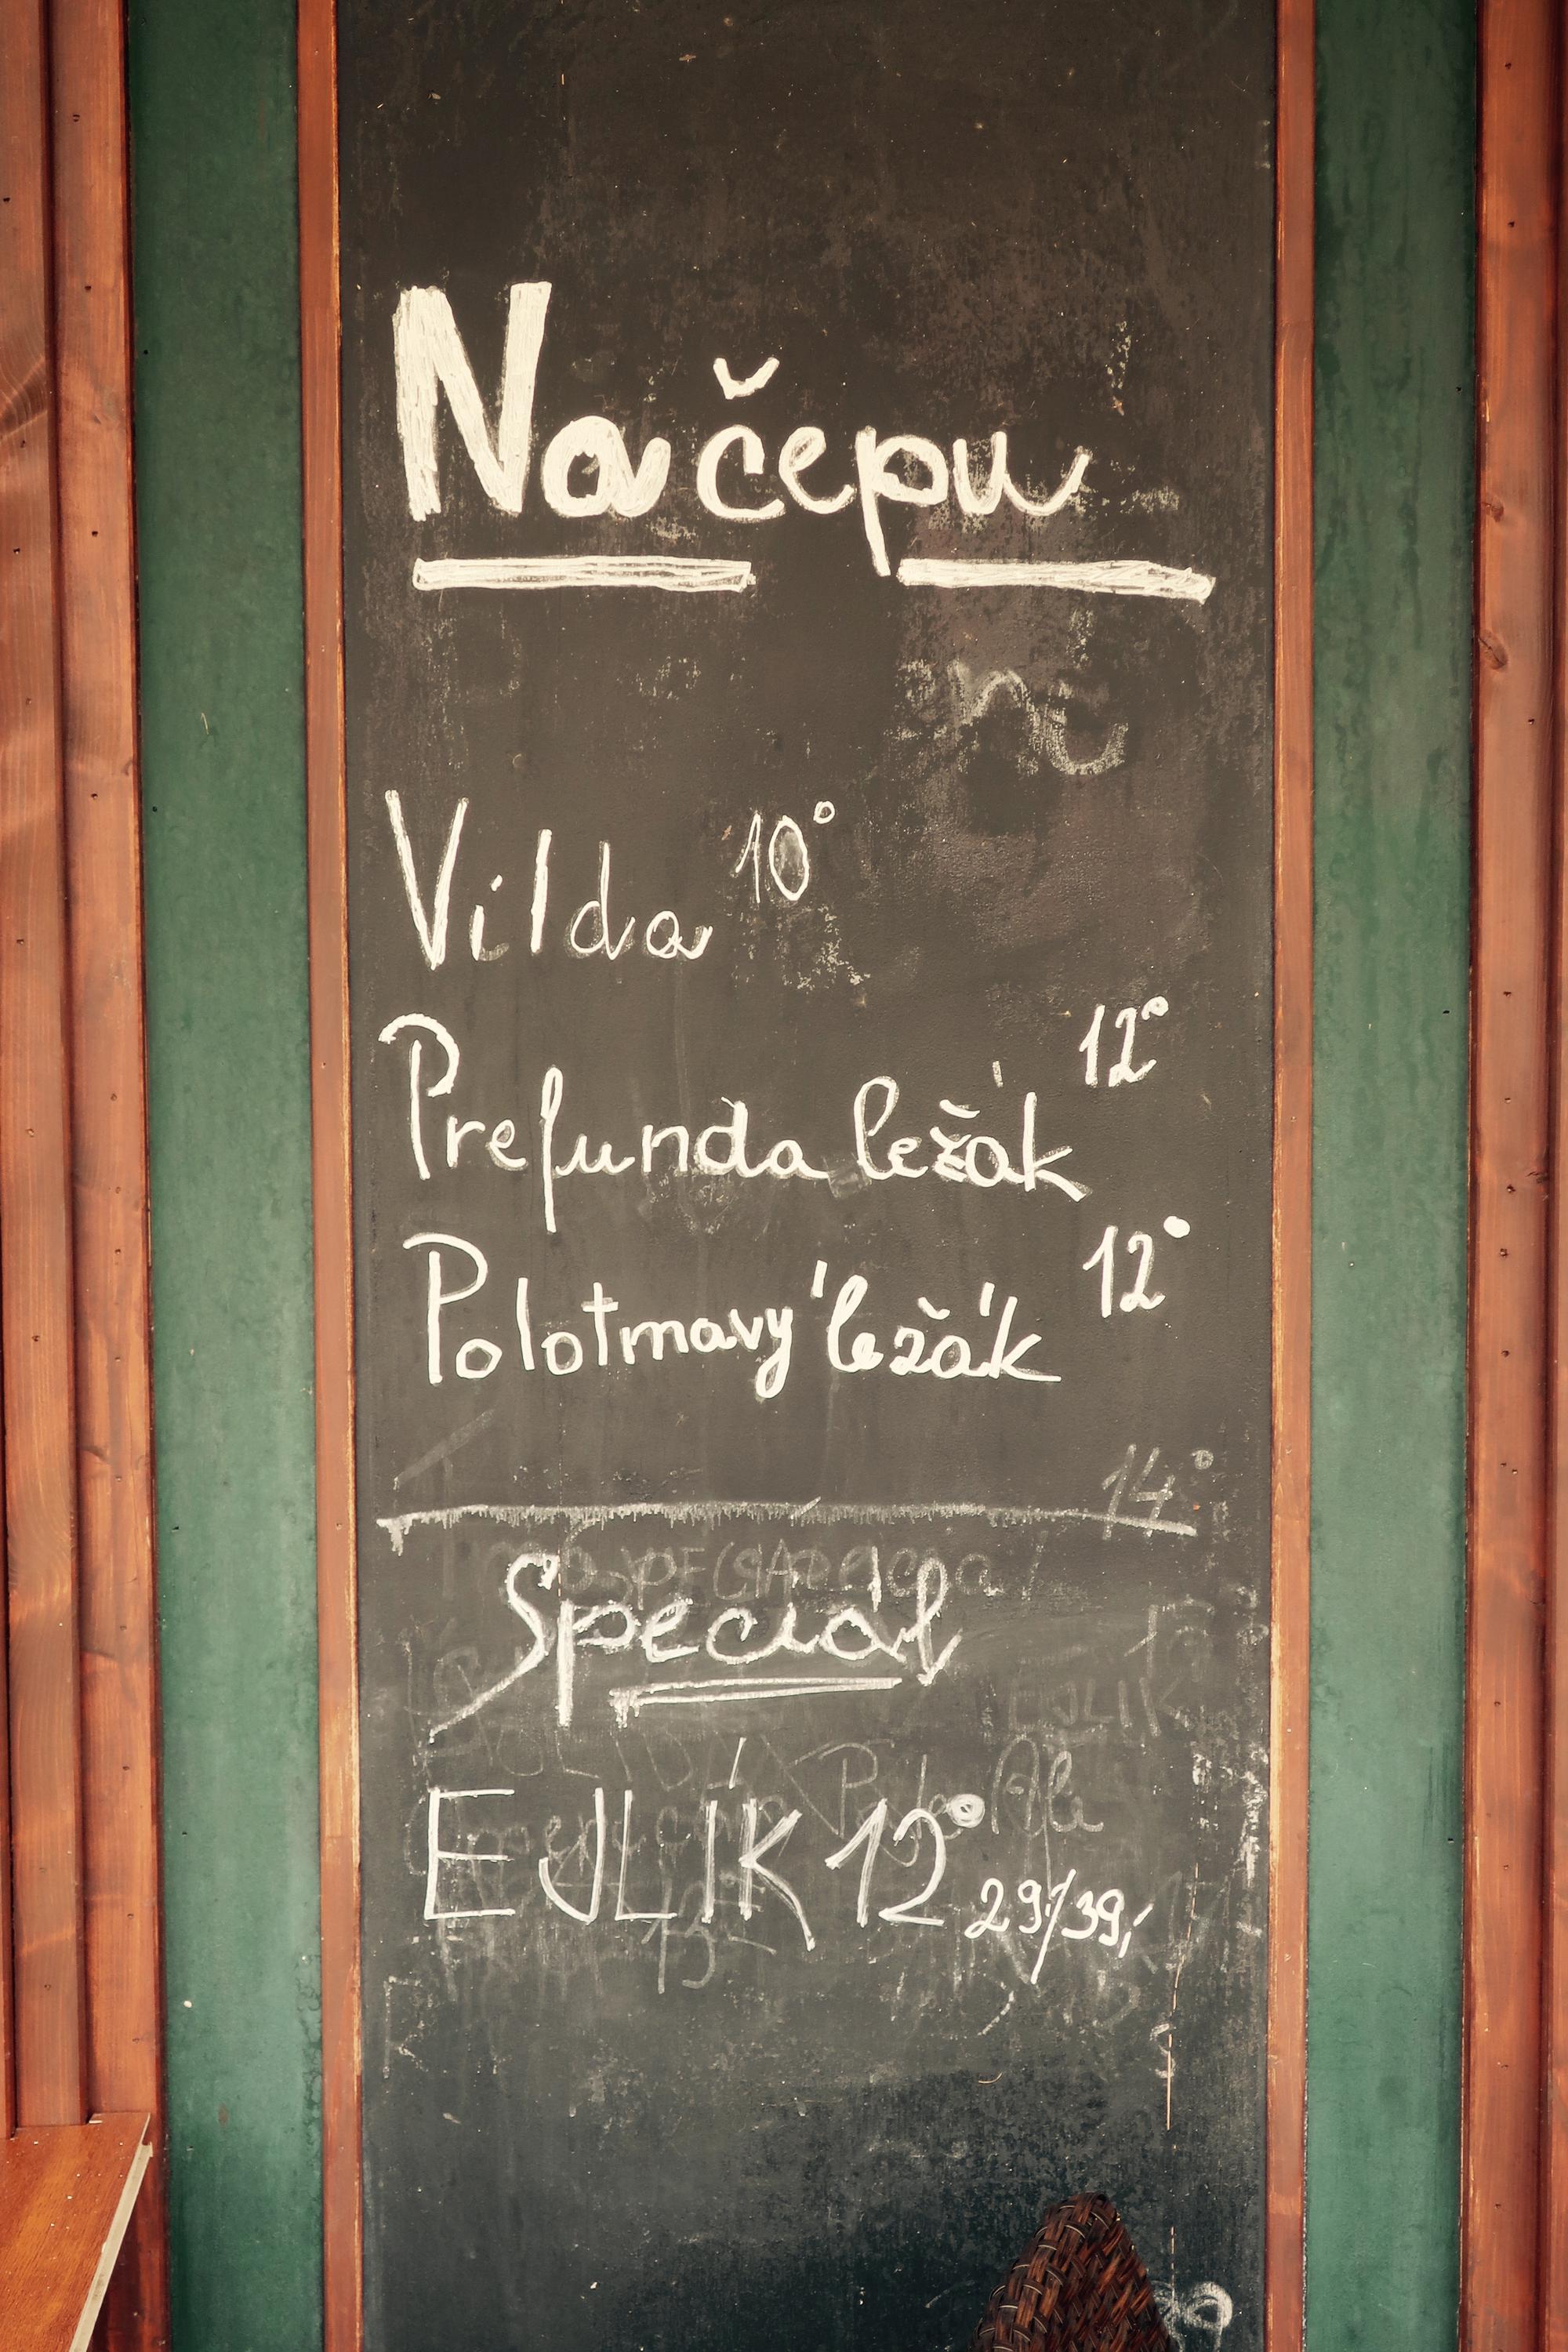 Na čepu
Vilda 10°
Prefunda ležák 12°
Polotmavý ležák 12°
14°
Speciál
EJLÍK 12° 29,/39,